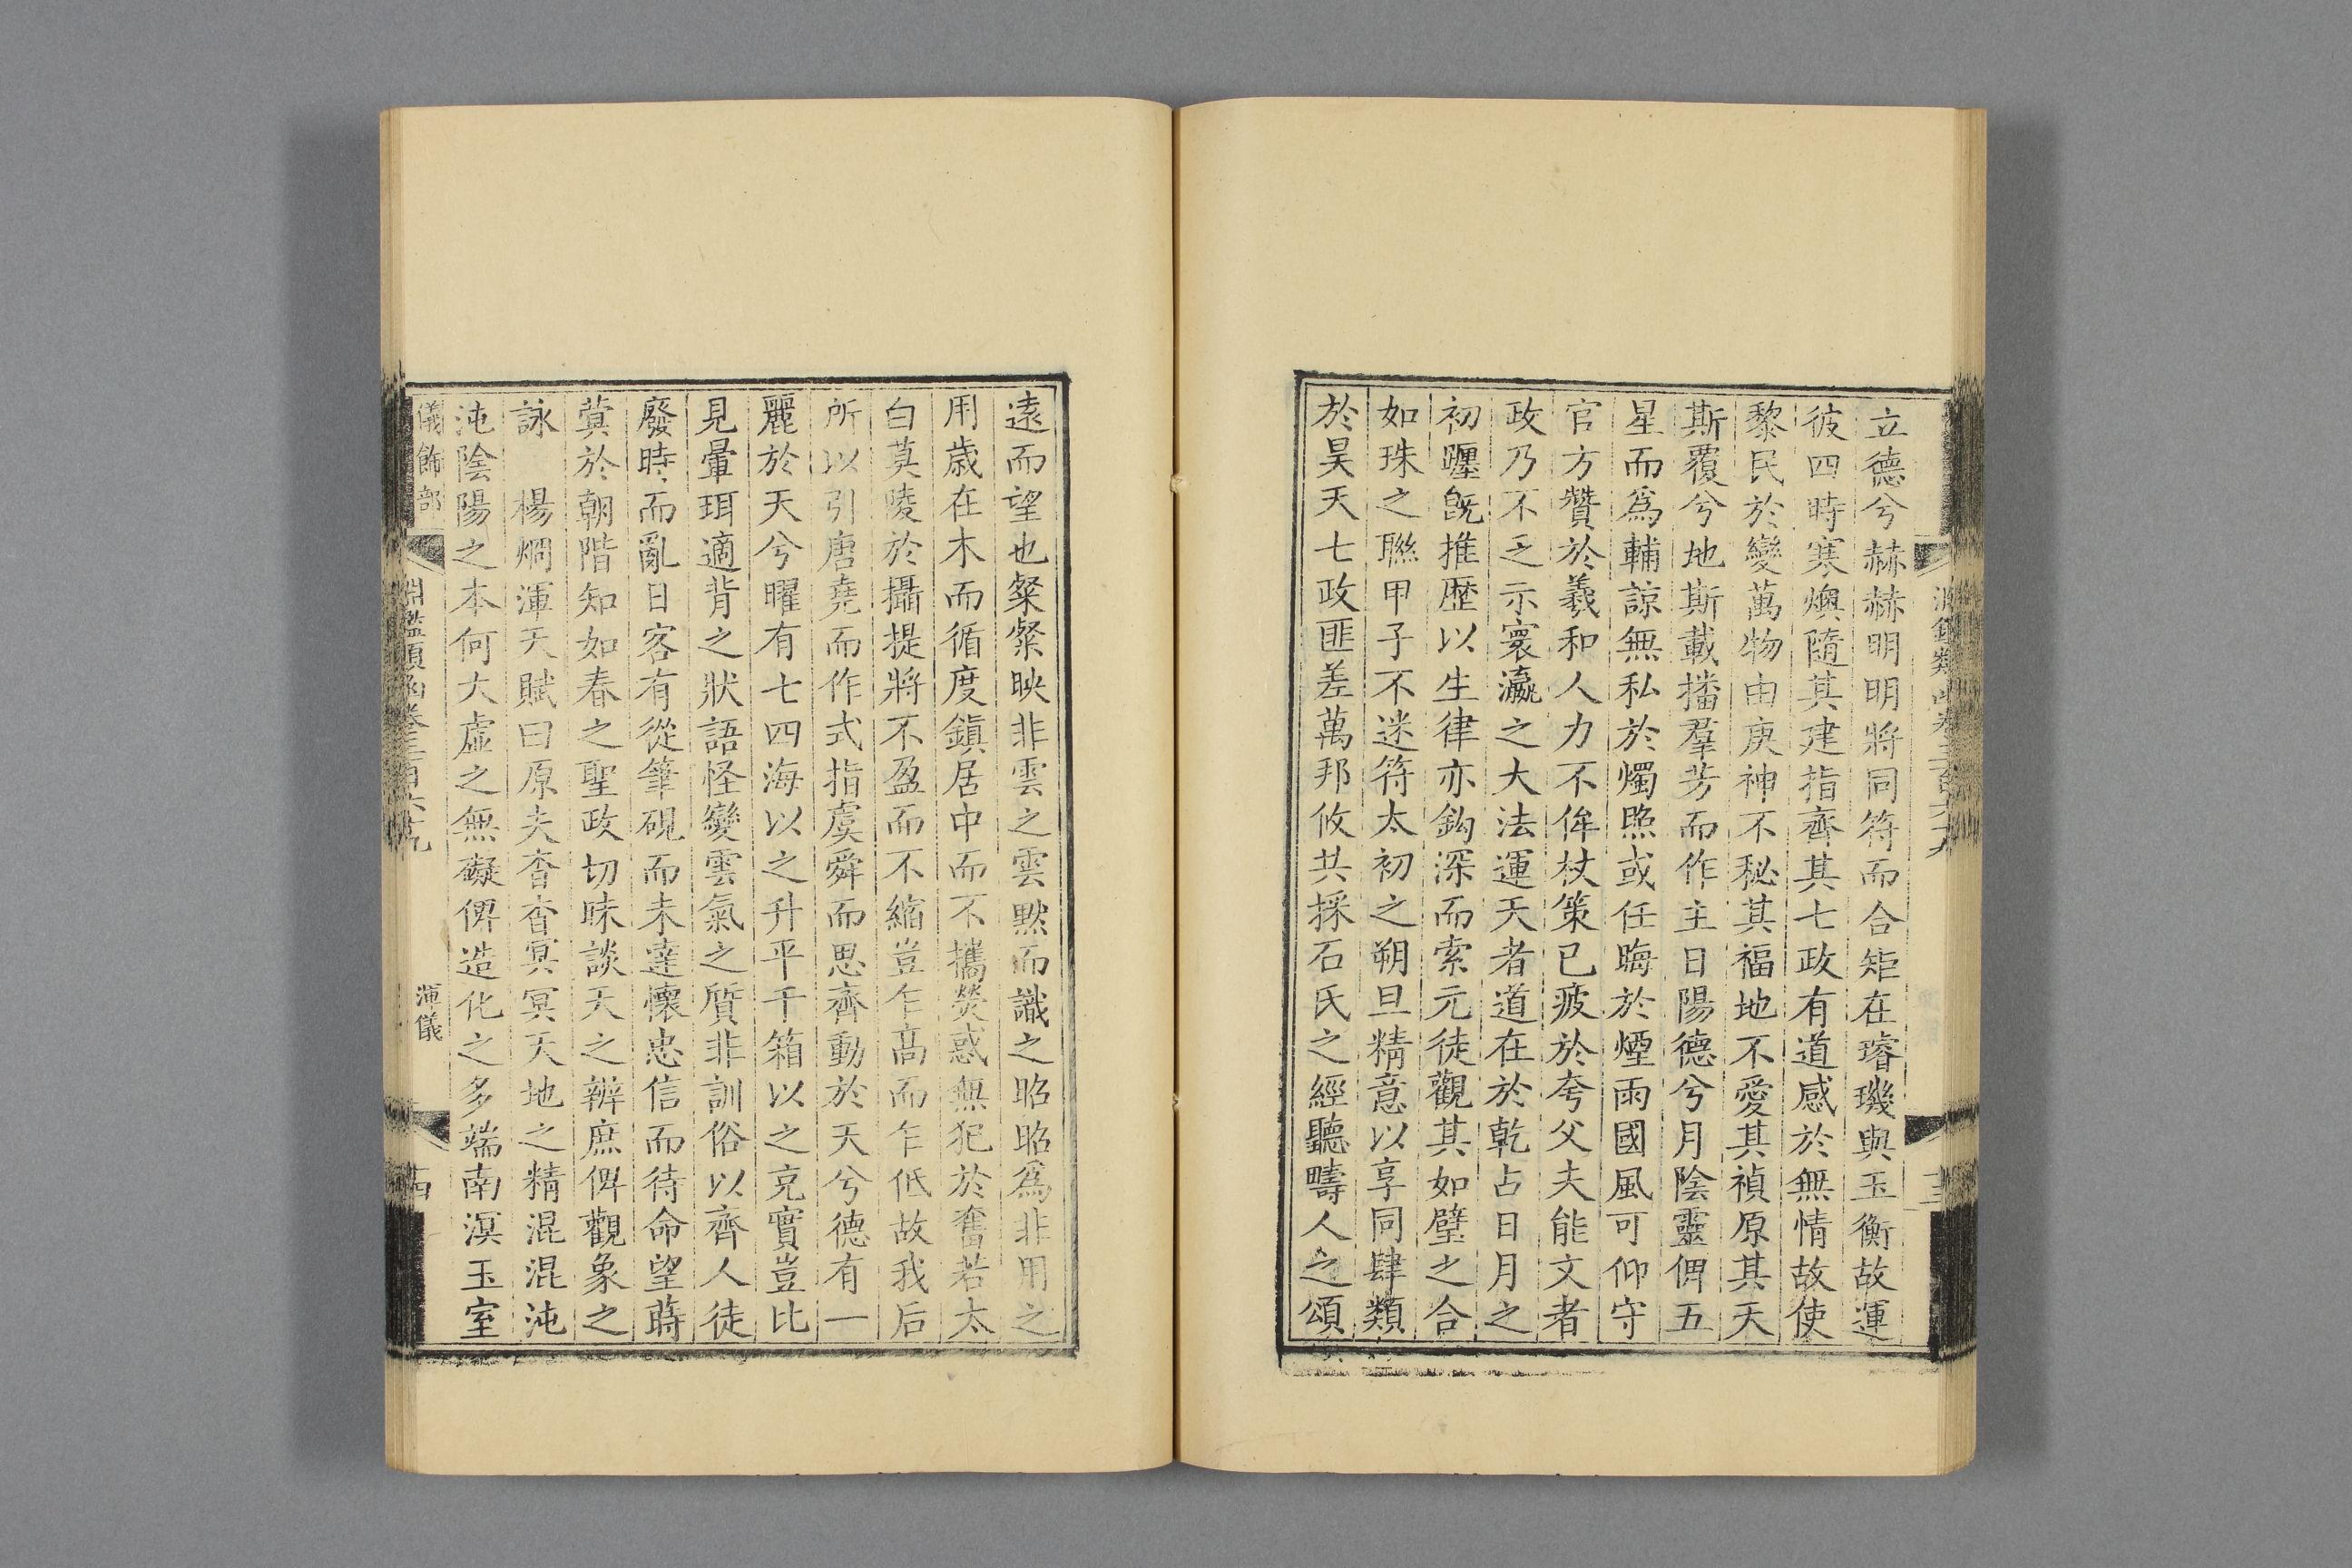 立德兮赫赫明明將同符而合矩在璿璣與玉衡故運
彼四時寒燠隨其建指齊其七政有道感於無情故使
黎民於變萬物由庚神不秘其福地不愛其禎原其天
斯覆兮地斯載播羣芳而作主日陽德兮月陰靈俾五
星而爲輔諒無私於燭照或任晦於煙雨國風可仰守
官方贊於羲和人力不侔杖策已疲於夸父夫能文者
政乃不乏示寰瀛之大法運天者道在於乾占日月之
初躔旣推歷以生律亦鈎深而索元徒觀其如璧之合
如珠之聯甲子不迷符太初之朔旦精意以享同肆類
於昊天七政匪差萬邦攸共採石氏之經聽疇人之頌
遠而望也粲粲映非雲之雲默而識之昭昭爲非用之
用歲在木而循度鎮居中而不攜熒惑無犯於奮若太
白莫陵於攝提將不盈而不縮豈乍高而乍低故我后
所以引唐堯而作式指虞舜而思齊動於天兮德有一
麗於天兮曜有七四海以之升平千箱以之克實豈比
見暈珥適背之狀語怪變雲氣之質非訓俗以齊人徒
廢時而亂日客有從筆硯而未達懷忠信而待命望蒔
蓂於朝階知如春之聖政切昧談天之辨庶俾觀象之
詠　楊烱渾天賦曰原夫杳杳冥冥天地之精混混沌
沌陰陽之本何大虛之無礙俾造化之多端南溟玉室
儀飾部　淵鑑類函卷三百六十九　渾儀　十四